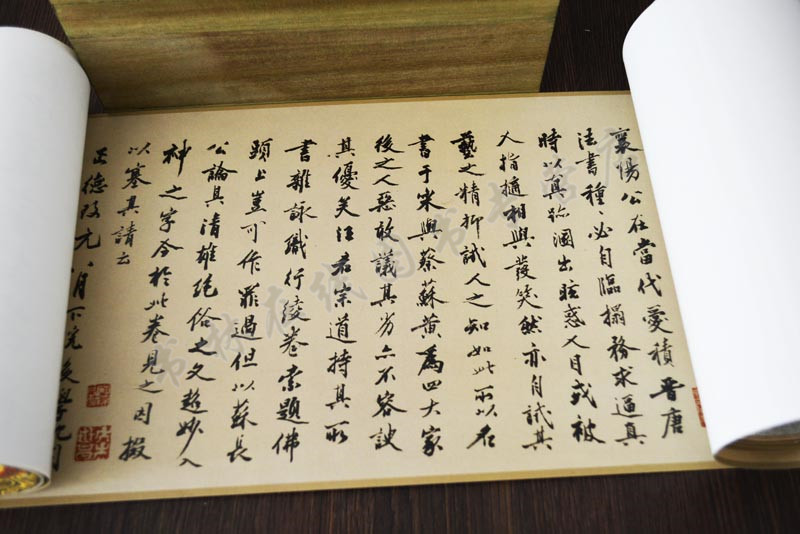 襄陽公在當代愛積晉唐
法書種〻必自臨搨務求逼真
時以真跡溷出眩惑人目或被
人指擿相與發笑然亦自試其
藝之精抑試人之知如此所以名
書于宋與蔡蘇黃為四大家
後之人惡敢議其劣亦不容諛
其優矣汪君宗道持其所
書雜詠織行綾卷索題佛
頭上豈可作罪過但以蘇長
公論其清雄絕俗之文超妙入
神之字今於此卷見之因掇
以塞其請云
正德改元月下浣後學沈周